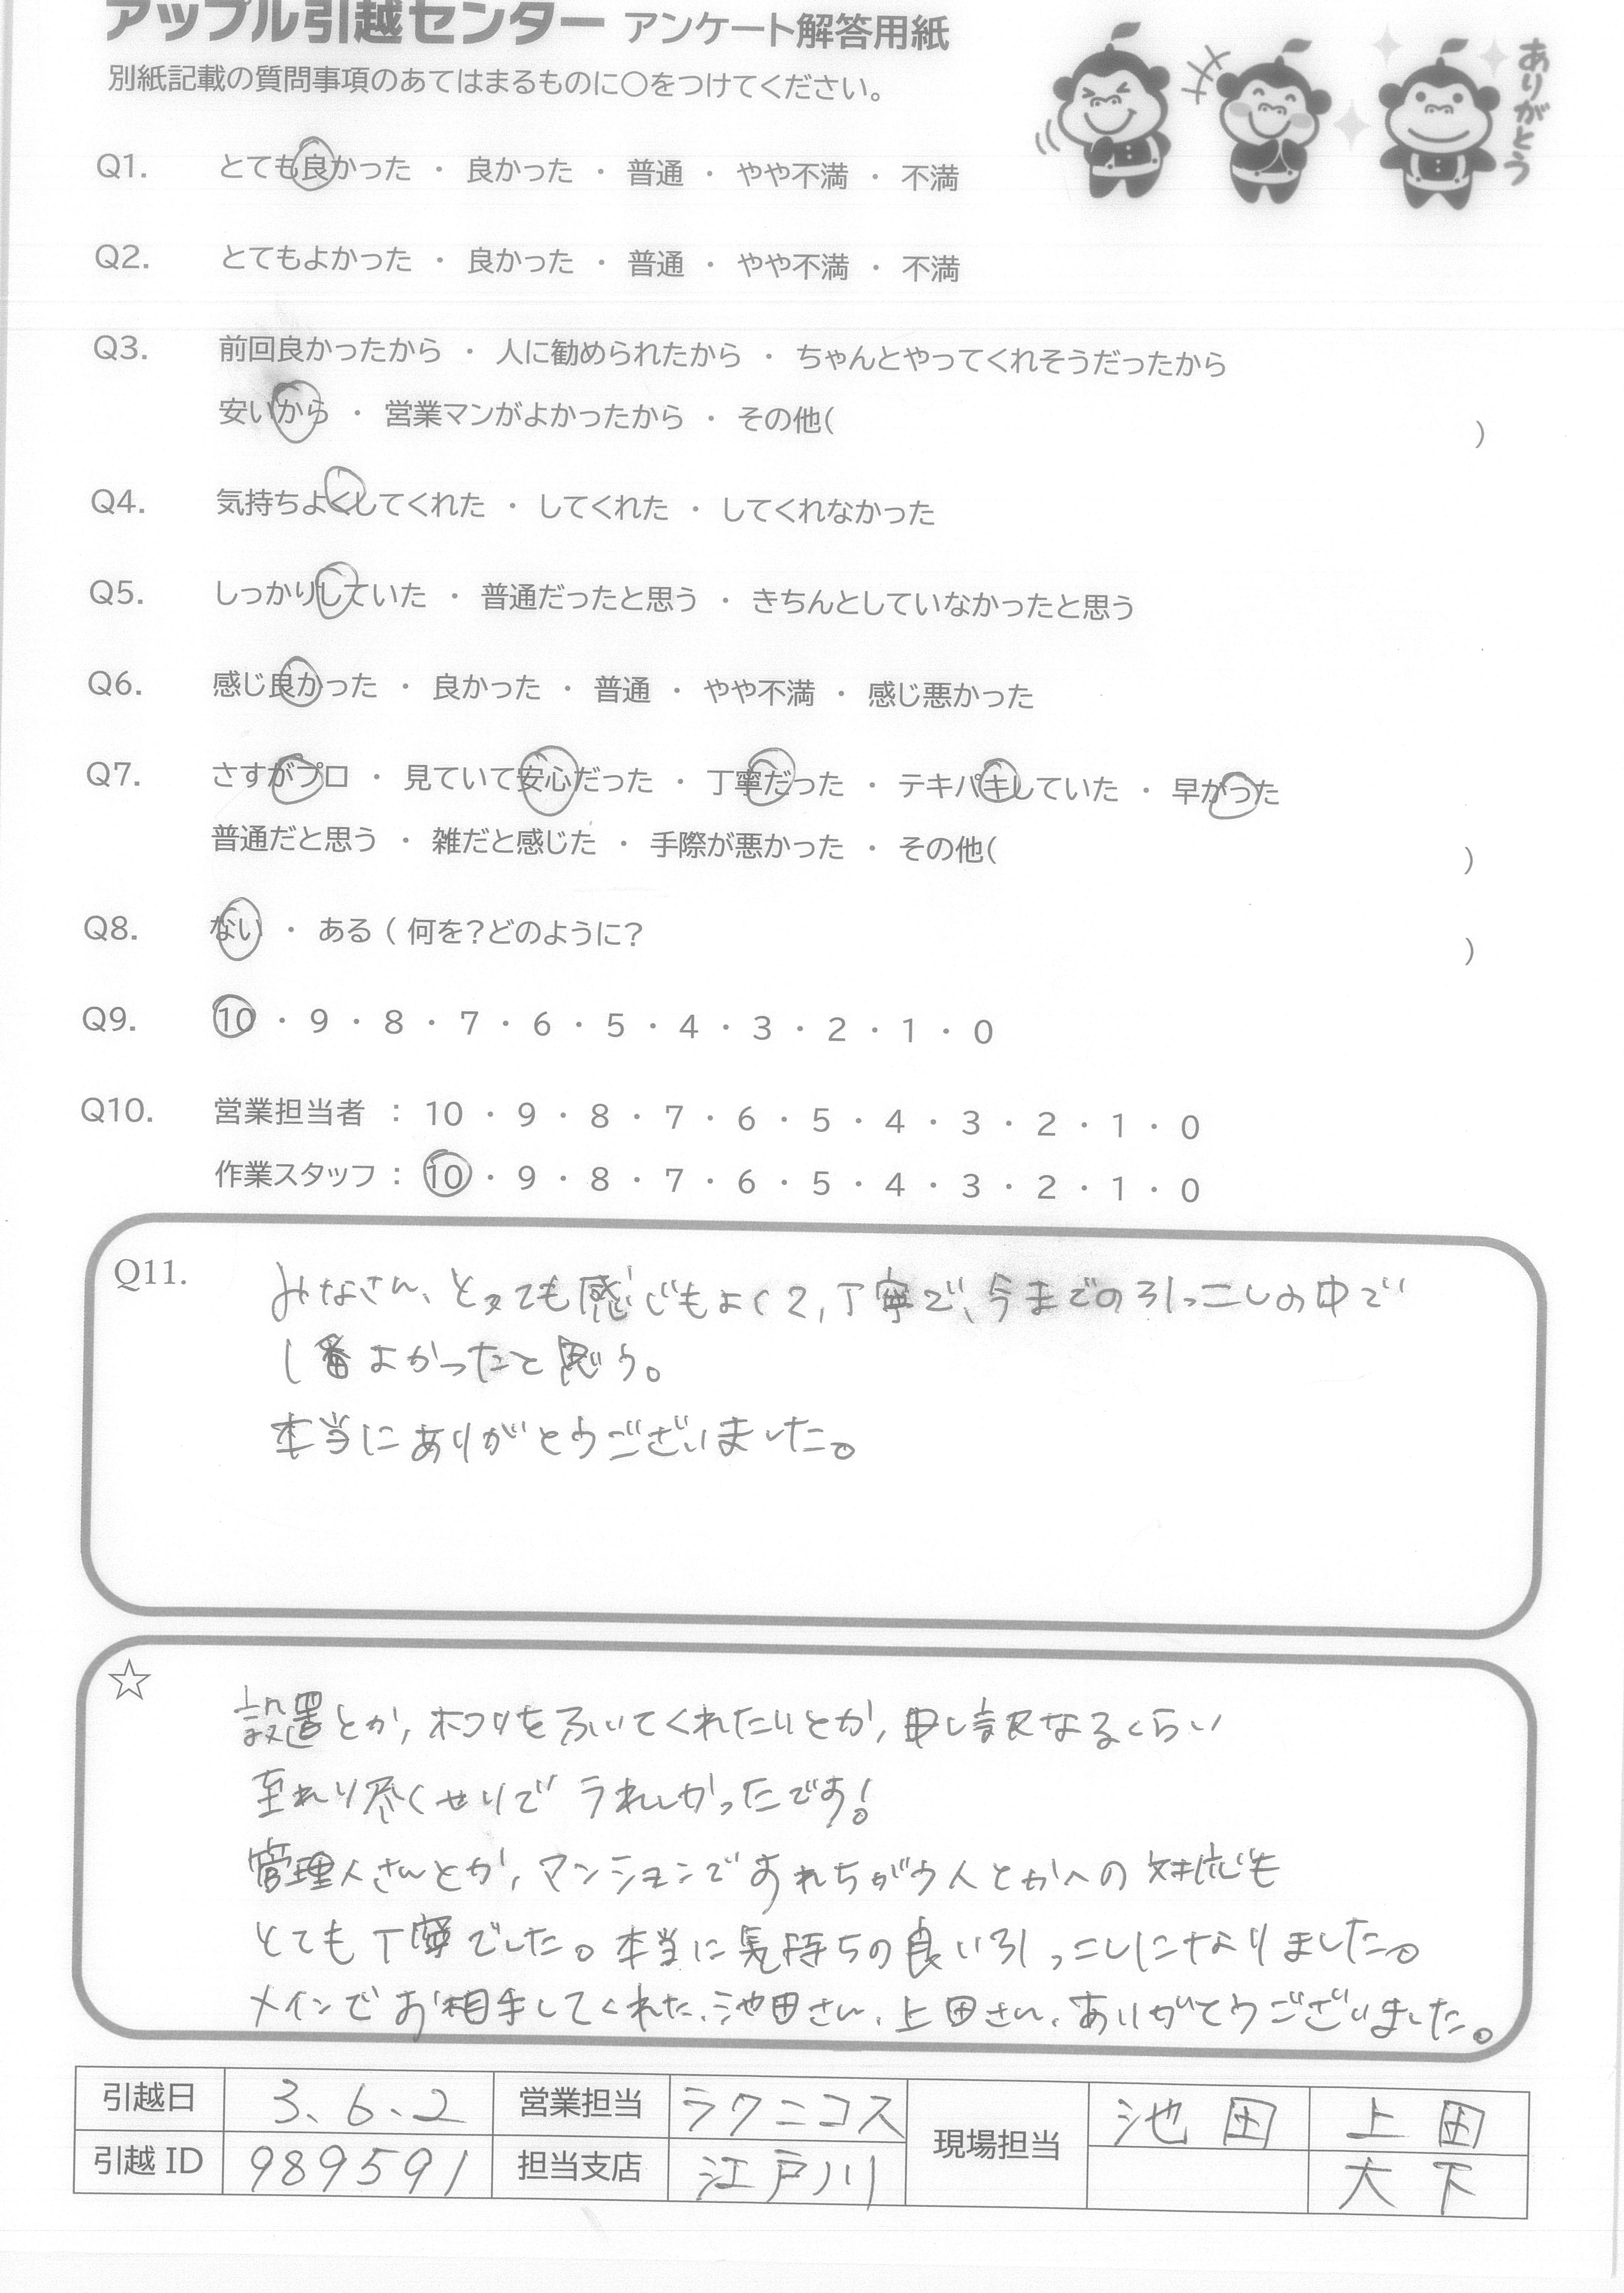 アップル引越センター アンケート解答用紙
別紙記載の質問事項のあてはまるものに〇をつけてください。
ありがとう
Q1. とても良かった ・ 良かった ・ 普通 ・ やや不満 ・ 不満
Q2. とてもよかった ・ 良かった ・ 普通 ・ やや不満 ・ 不満
Q3. 前回良かったから ・ 人に勧められたから ・ ちゃんとやってくれそうだったから
安いから ・ 営業マンがよかったから ・ その他( )
Q4. 気持ちよくしてくれた ・ してくれた ・ してくれなかった
Q5. しっかりしていた ・ 普通だったと思う ・ きちんとしていなかったと思う
Q6. 感じ良かった ・ 良かった ・ 普通 ・ やや不満 ・ 感じ悪かった
Q7. さすがプロ ・ 見ていて安心だった ・ 丁寧だった ・ テキパキしていた ・ 早かった
普通だと思う ・ 雑だと感じた ・ 手際が悪かった ・ その他( )
Q8. ない ・ ある ( 何を?どのように? )
Q9. 10 ・ 9 ・ 8 ・ 7 ・ 6 ・ 5 ・ 4 ・ 3 ・ 2 ・ 1 ・ 0
Q10. 営業担当者 : 10 ・ 9 ・ 8 ・ 7 ・ 6 ・ 5 ・ 4 ・ 3 ・ 2 ・ 1 ・ 0
作業スタッフ : 10 ・ 9 ・ 8 ・ 7 ・ 6 ・ 5 ・ 4 ・ 3 ・ 2 ・ 1 ・ 0
Q11. みなさん、とっても感じもよくて、丁寧で、今までの引っこしの中で
1番よかったと思う。
本当にありがとうございました。
☆ 設置とか、ホコリをふいてくれたりとか、申し訳なるくらい
至れり尽くせりで うれしかったです!
管理人さんとか、マンションですれちがう人とかへの対応も
とても丁寧でした。本当に気持ちの良い引っこしになりました。
メインでお相手してくれた、池田さん、上田さん、ありがとうございました。
引越日 3、6、2 営業担当 ラクニコス 現場担当 池田 上田
引越ID 989591 担当支店 江戸川 大下